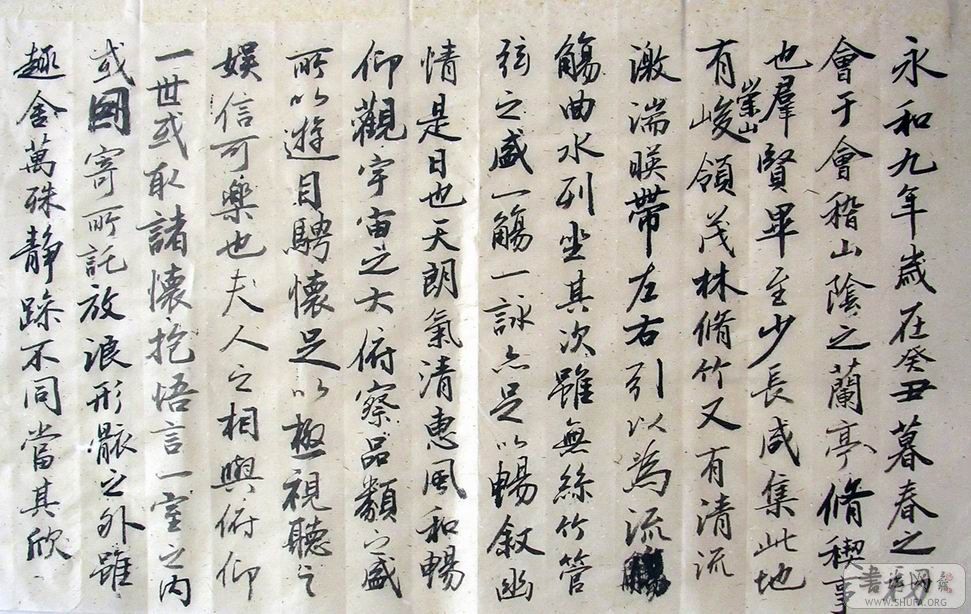 永和九年歲在癸丑暮春之
會于會稽山陰之蘭亭脩稧事
也羣賢畢至少長咸集此地
有崇山峻領茂林脩竹又有清流
激湍暎帶左右引以為流
觴曲水列坐其次雖無絲竹管
弦之盛一觴一詠亦足以暢敘幽
情是日也天朗氣清惠風和暢
仰觀宇宙之大俯察品類之盛
所以遊目騁懷足以極視聽之
娛信可樂也夫人之相與俯仰
一世或取諸懷抱悟言一室之內
或因寄所託放浪形骸之外雖
趣舍萬殊靜躁不同當其欣
WWW.SHUFA.ORG